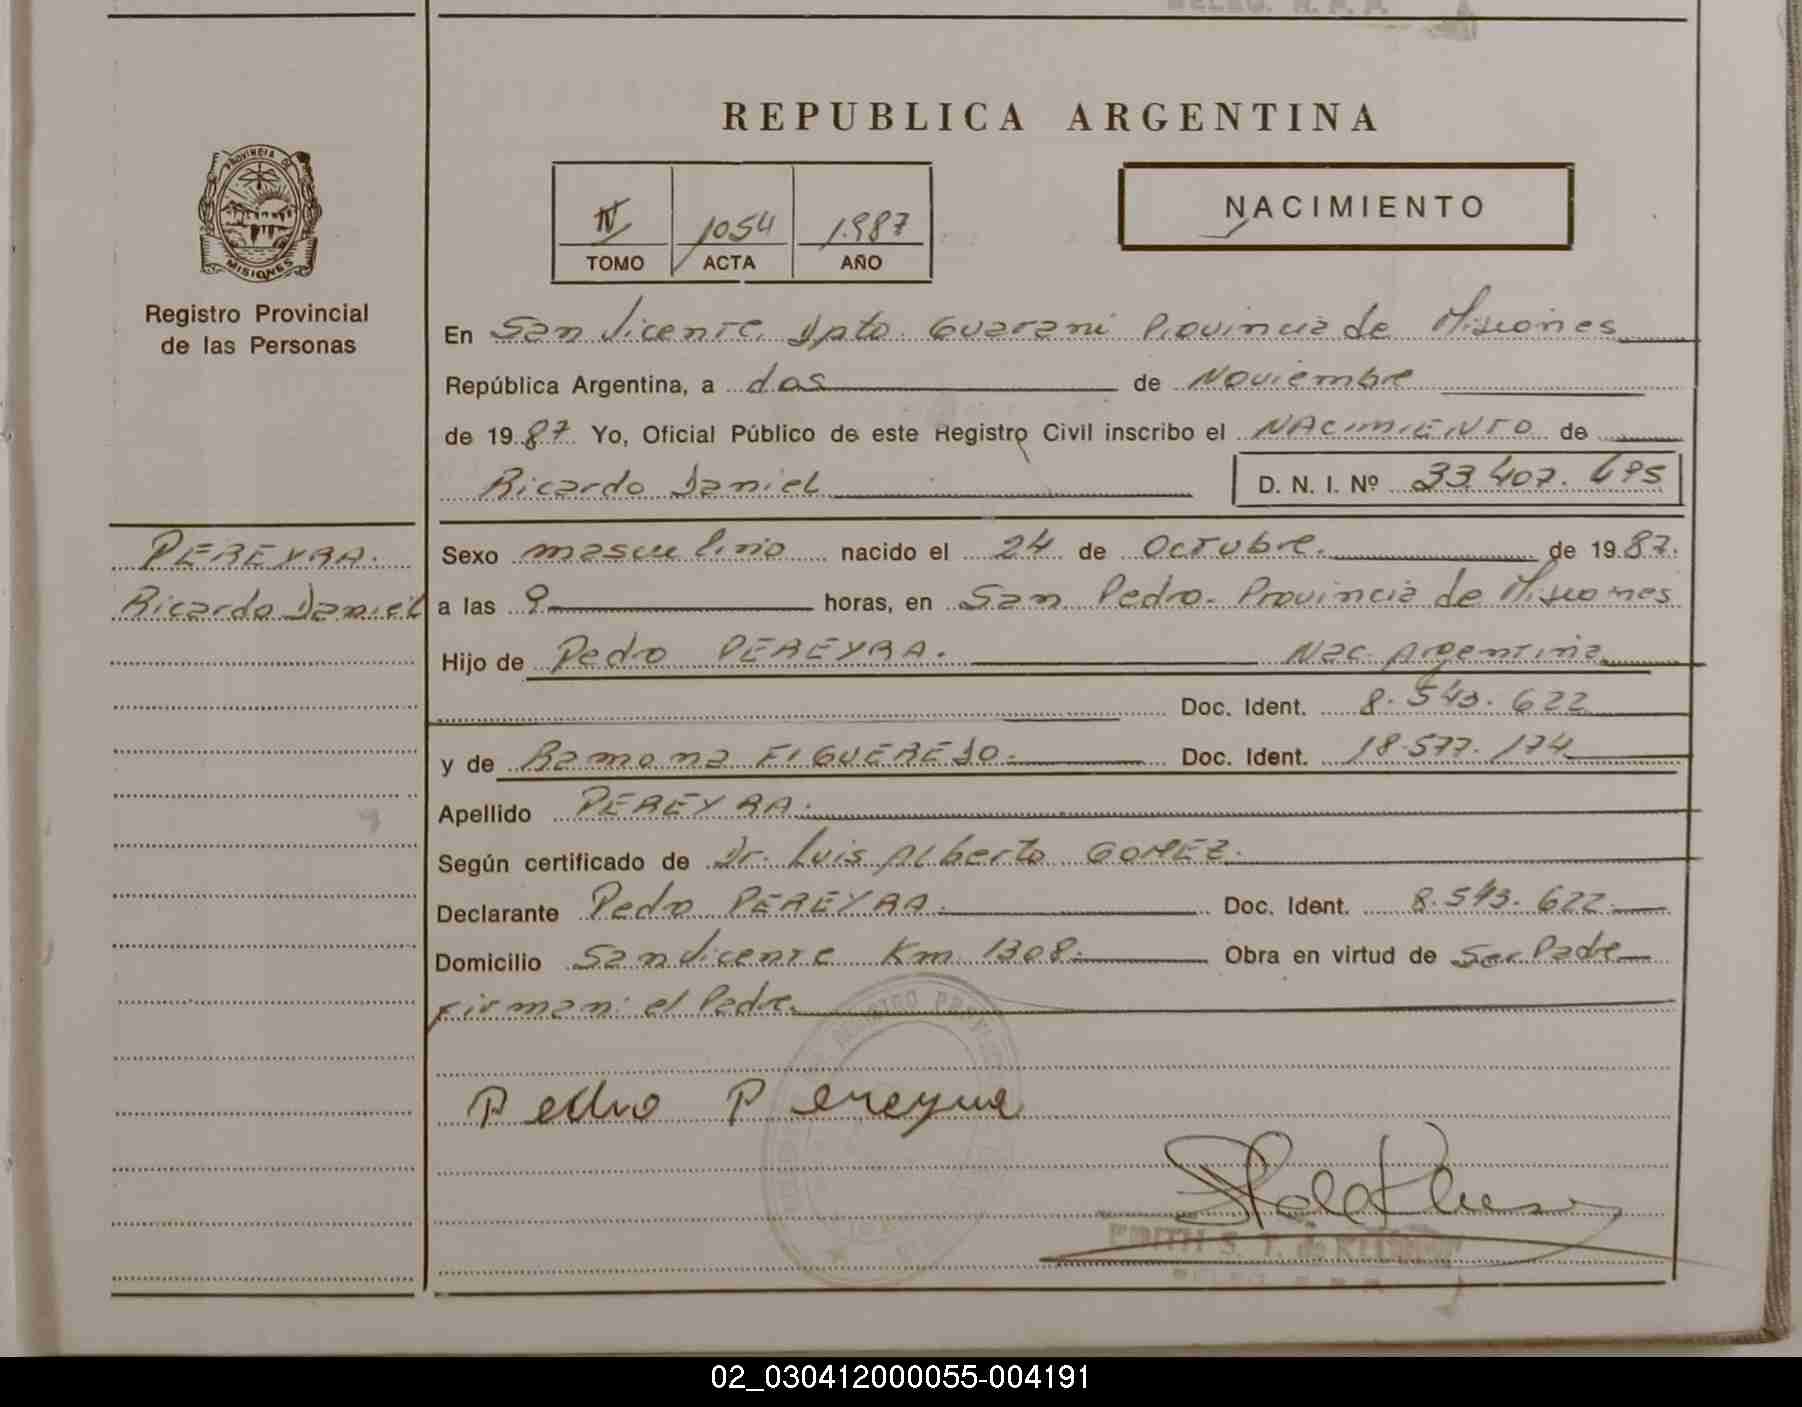 REPUBLICA ARGENTINA
PROVINCIA DE
MISIONES
Registro Provincial
de las Personas
IV 1054 1.987
TOMO ACTA AÑO
NACIMIENTO
En San Vicente, Dpto. Guarani Provincia de Misiones
República Argentina, a dos de Noviembre
de 19 87 Yo, Oficial Público de este Registro Civil inscribo el NACIMIENTO de
Ricardo Daniel D. N. I. Nº 33.407.695
PEREYRA.
Ricardo Daniel
Sexo masculino nacido el 24 de Octubre. de 19 87.
a las 9 horas, en San Pedro. Provincia de Misiones
Hijo de Pedro PEREYRA. Nac. Argentina
Doc. Ident. 8.543.622
y de Ramona FIGUEREDO. Doc. Ident. 18.577.174
Apellido PEREYRA.
Según certificado de Dr. Luis Alberto GOMEZ.
Declarante Pedro PEREYRA. Doc. Ident. 8.543.622
Domicilio San Vicente Km 1308. Obra en virtud de Ser Padre
Firman: el Padre.
Pedro Pereyra
EDITH S. T. de
02_030412000055-004191